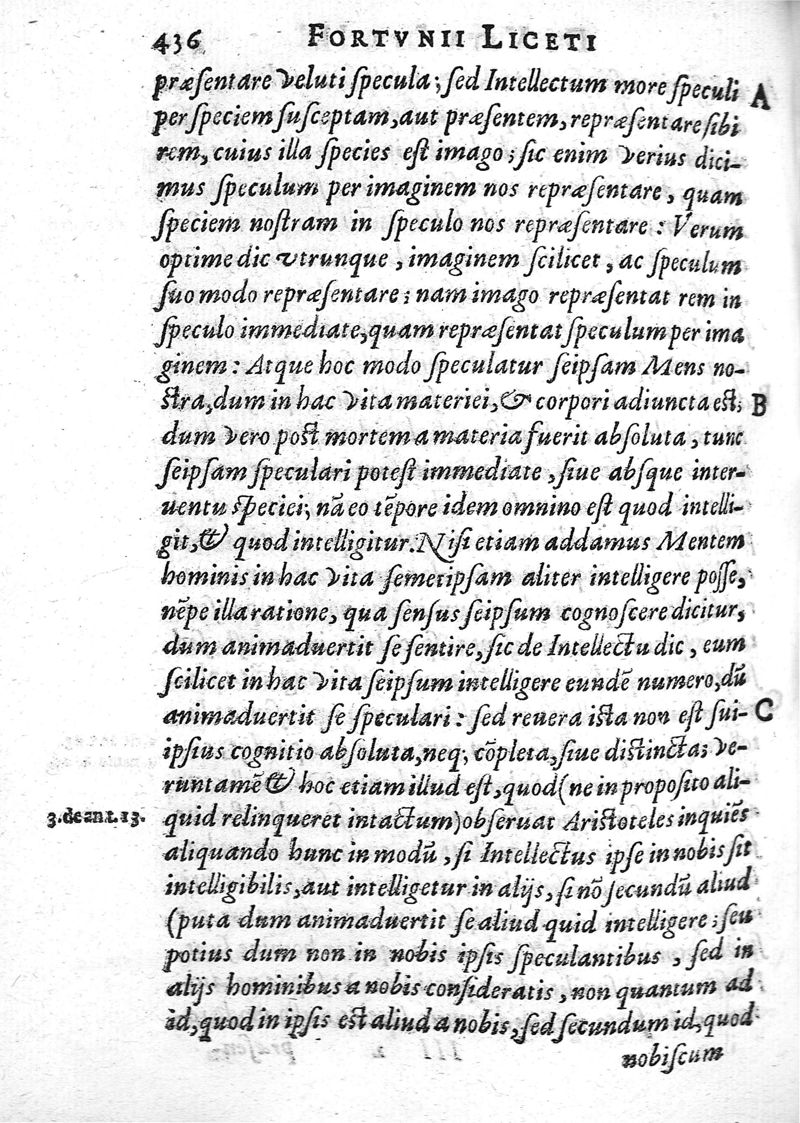 436 FORTVNII LICETI
præſentare veluti ſpecula; ſed Intellectum more ſpeculi A
per ſpeciem ſuſceptam, aut præſentem, repræſentare ſibi
rem, cuius illa ſpecies eſt imago; ſic enim verius dici-
mus ſpeculum per imaginem nos repræſentare, quam
ſpeciem noſtram in ſpeculo nos repræſentare: Verum
optime dic vtrunque, imaginem ſcilicet, ac ſpeculum
ſuo modo repræſentare; nam imago repræſentat rem in
ſpeculo immediate, quam repræſentat ſpeculum per ima
ginem: Atque hoc modo ſpeculatur ſeipſam Mens no-
ſtra, dum in hac vita materiei, & corpori adiuncta eſt; B
dum vero poſt mortem a materia fuerit abſoluta, tunc
ſeipſam ſpeculari poteſt immediate, ſiue abſque inter-
uentu ſpeciei; nā eo tēpore idem omnino eſt quod intelli-
git, & quod intelligitur. Niſi etiam addamus Mentem
hominis in hac vita ſemetipſam aliter intelligere poſſe,
nēpe illa ratione, qua ſenſus ſeipſum cognoſcere dicitur,
dum animaduertit ſe ſentire, ſic de Intellectu dic, eum
ſcilicet in hac vita ſeipſum intelligere eundē numero, dū
animaduertit ſe ſpeculari: ſed reuera iſta non eſt ſui- C
ipſius cognitio abſoluta, neq; cōpleta, ſiue diſtincta; ve-
runtamē & hoc etiam illud eſt, quod (ne in propoſito ali-
3. de an. t. 13. quid relinqueret intactum) obſeruat Ariſtoteles inquiēs
aliquando hunc in modū, ſi Intellectus ipſe in nobis ſit
intelligibilis, aut intelligetur in alijs, ſi nō ſecundū aliud
(puta dum animaduertit ſe aliud quid intelligere; ſeu
potius dum non in nobis ipſis ſpeculantibus, ſed in
alijs hominibus a nobis conſideratis, non quantum ad
id, quod in ipſis eſt aliud a nobis, ſed ſecundum id, quod
nobiſcum